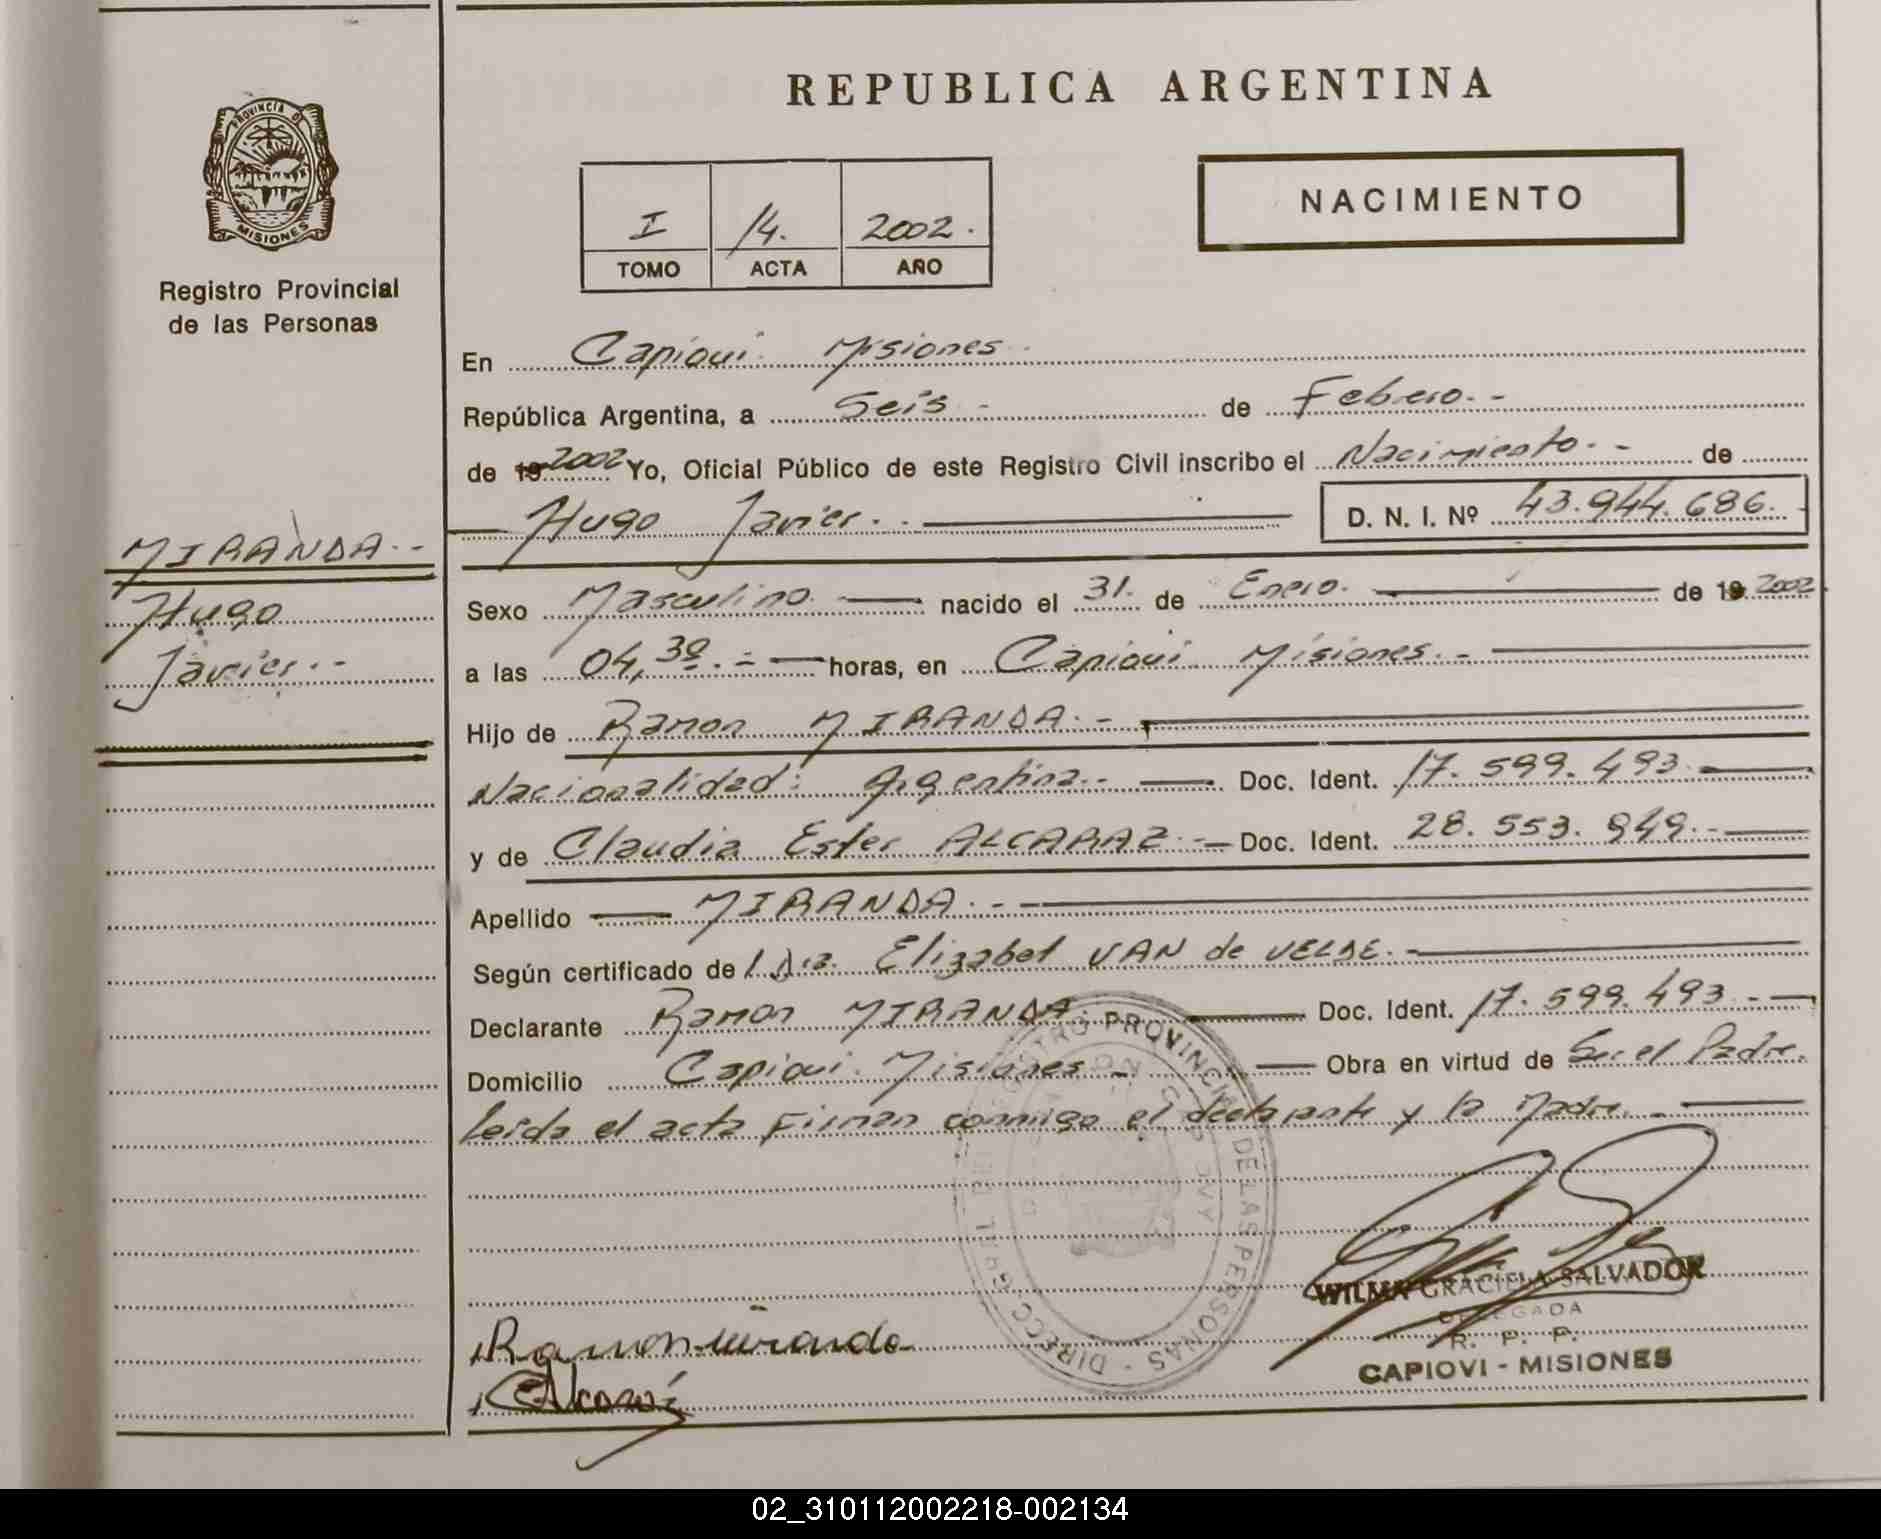 REPUBLICA ARGENTINA
PROVINCIA DE
MISIONES
Registro Provincial
de las Personas
I 14. 2002.
TOMO ACTA AÑO
NACIMIENTO
En Capiovi Misiones
República Argentina, a Seis - de Febrero.-
de 19 2002 Yo, Oficial Público de este Registro Civil inscribo el Nacimiento.- de
Hugo Javier.- D. N. I. Nº 43.944.686.-
MIRANDA.-
Hugo
Javier.-
Sexo Masculino. nacido el 31. de Enero. de 19 2002
a las 04,30.- horas, en Capiovi Misiones.-
Hijo de Ramon MIRANDA.-
Nacionalidad: Argentina.- Doc. Ident. 17.599.493.
y de Claudia Ester ALCARAZ.- Doc. Ident. 28.553.949.-
Apellido MIRANDA.-
Según certificado de Elizabet VAN de VELDE.-
Declarante Ramon MIRANDA. Doc. Ident. 17.599.493.-
Domicilio Capiovi. Misiones - Obra en virtud de Ser el Padre.
Leida el acta Firman conmigo el declarante y la Madre.-
DIRECC. GRAL. DEL REGISTRO PROVINCIAL DE LAS PERSONAS
WILMA GRACIELA SALVADOR
DELEGADA
R. P. P.
CAPIOVI - MISIONES
Ramon miranda
C Alcaraz
02_310112002218-002134